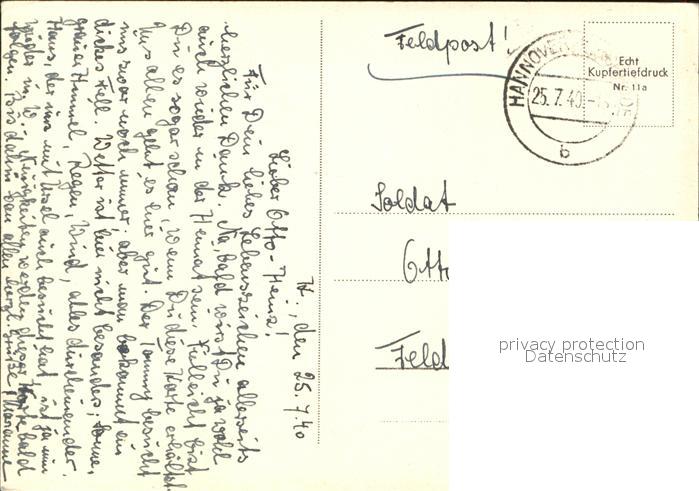 H., den 25.7.40
Lieber Otto-Heinz!
Für Dein liebes Lebenszeichen allerseits
herzlichen Dank. Na, bald wirst Du ja wohl
auch wieder in der Heimat sein. Vielleicht bist
Du es sogar schon, wenn Du diese Karte erhältst.
Uns allen geht es hier gut. Der Tommy besucht
uns zwar noch immer, aber man bekommt ein
dickes Fell. Wetter ist hier nicht besonders; Sonne,
grauer Himmel, Regen, Wind, alles durcheinander.
Hans, der uns mit Ursel auch besucht hat, ist ja nun
wieder in W. Neuigkeiten werden dieser Karte bald
folgen. Bis dahin von allen herzl. Grüße, Marianne
Feldpost!
HANNOVER
25.7.40
b
Echt
Kupfertiefdruck
Nr. 11a
Soldat
Otto
Feld
privacy protection
Datenschutz